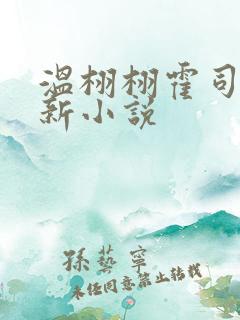 温栩栩霍司
新小说
孫藝寧
未经同意禁止转载